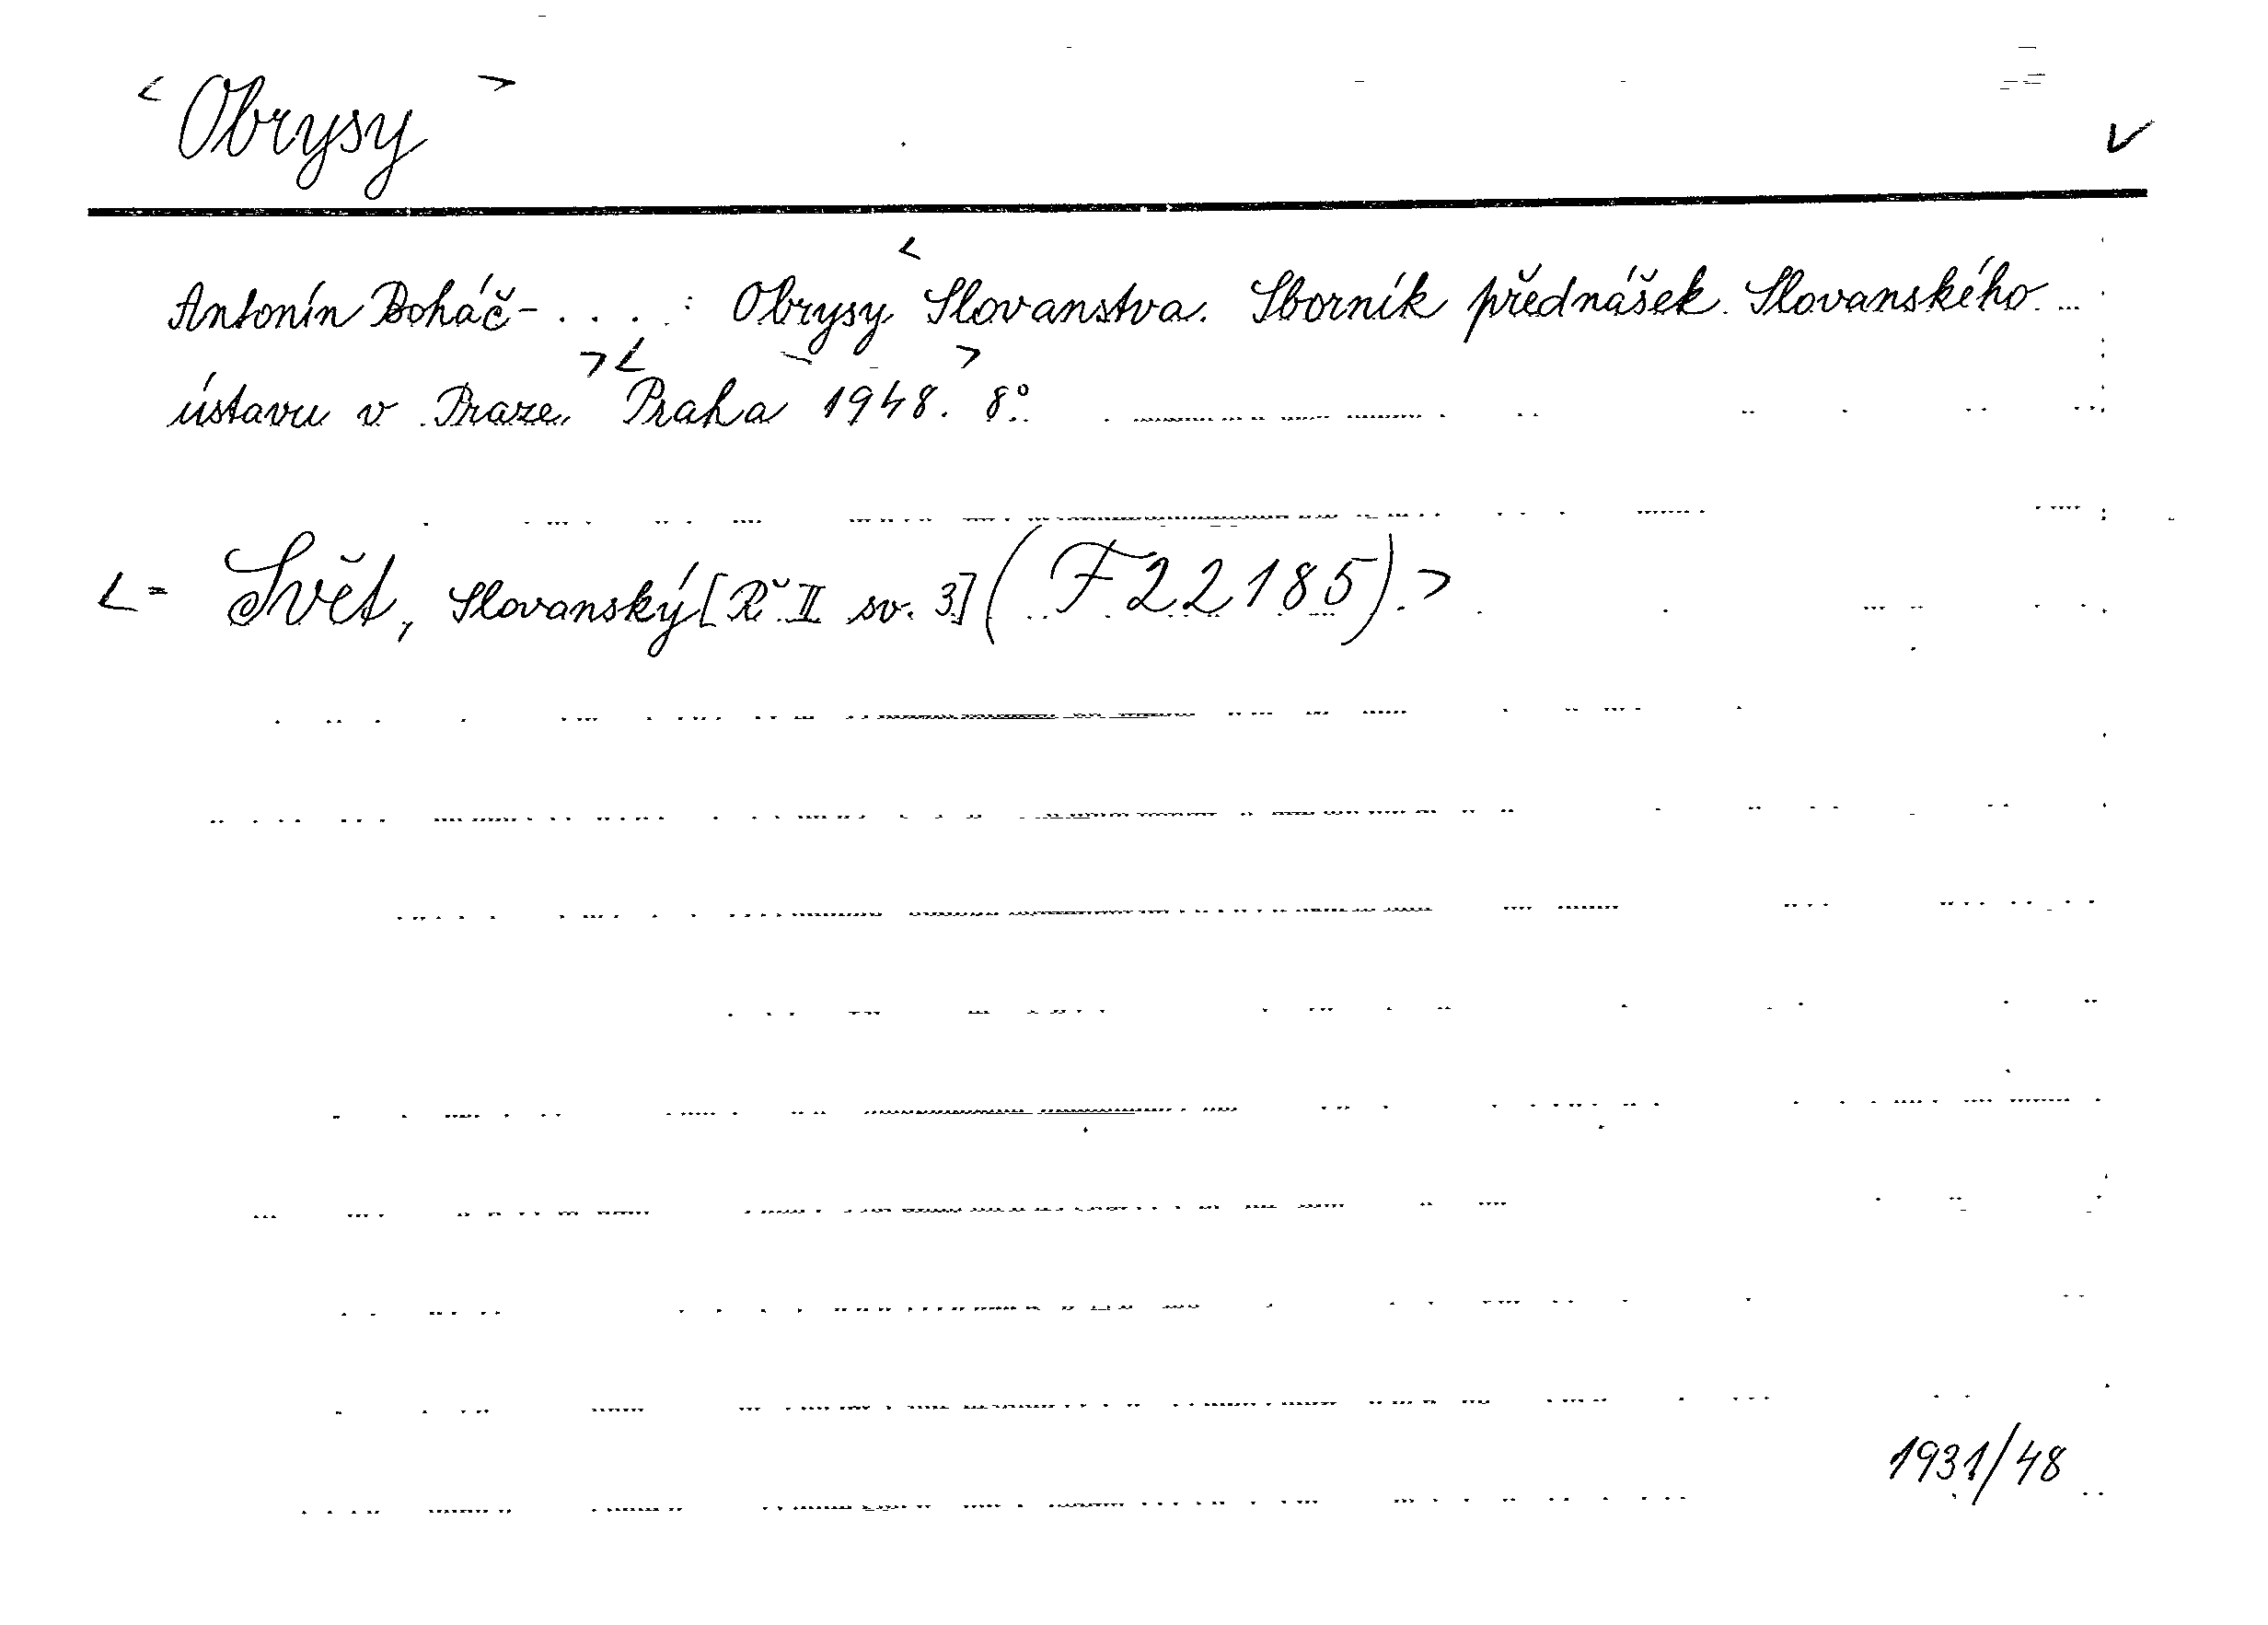 < Obrysy >
Antonín Boháč - . . . . : Obrysy < Slovanstva. Sborník přednášek Slovanského
ústavu v Praze. > < Praha 1948. > 8°.
< = Svět, Slovanský [Ř. II sv. 3] (F 22185). >
1931/48